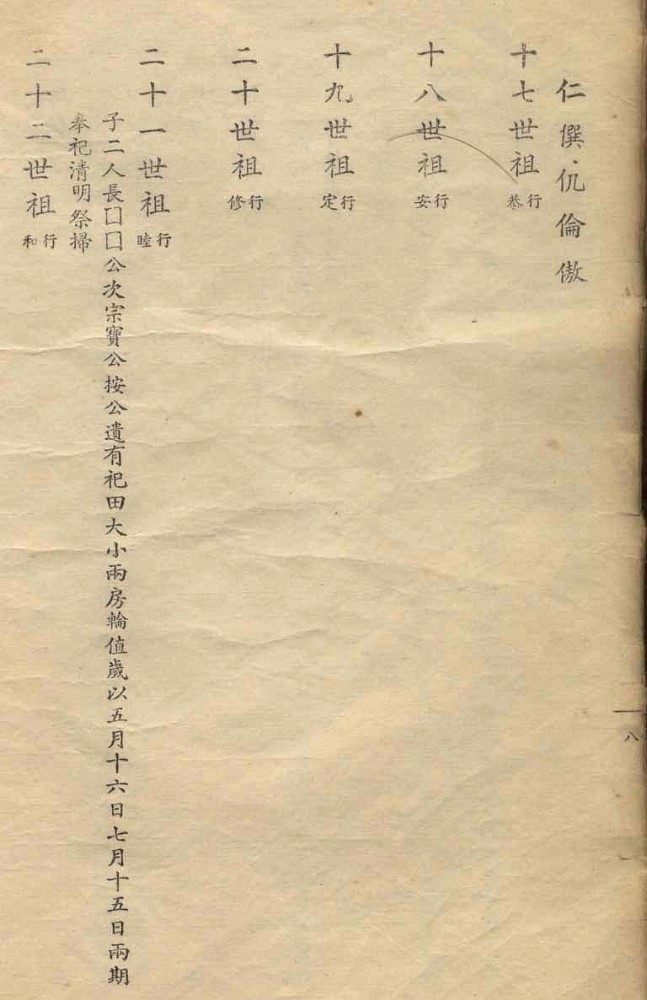 八
仁僎伉倫傲
十七世祖行恭
十八世祖行安
十九世祖行定
二十世祖行修
二十一世祖行睦
子二人長囗囗公次宗寶公按公遺有祀田大小兩房輪值歲以五月十六日七月十五日兩期
奉祀清明祭掃
二十二世祖行和